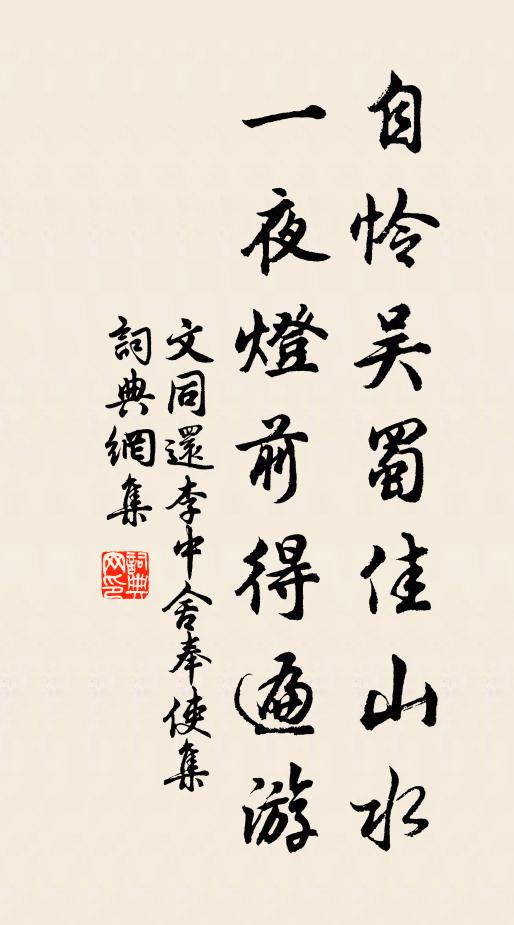 自怜吴蜀佳山水
一夜燈前得遍游
文同還李中舍奉使集
詞典網集
詞典网印